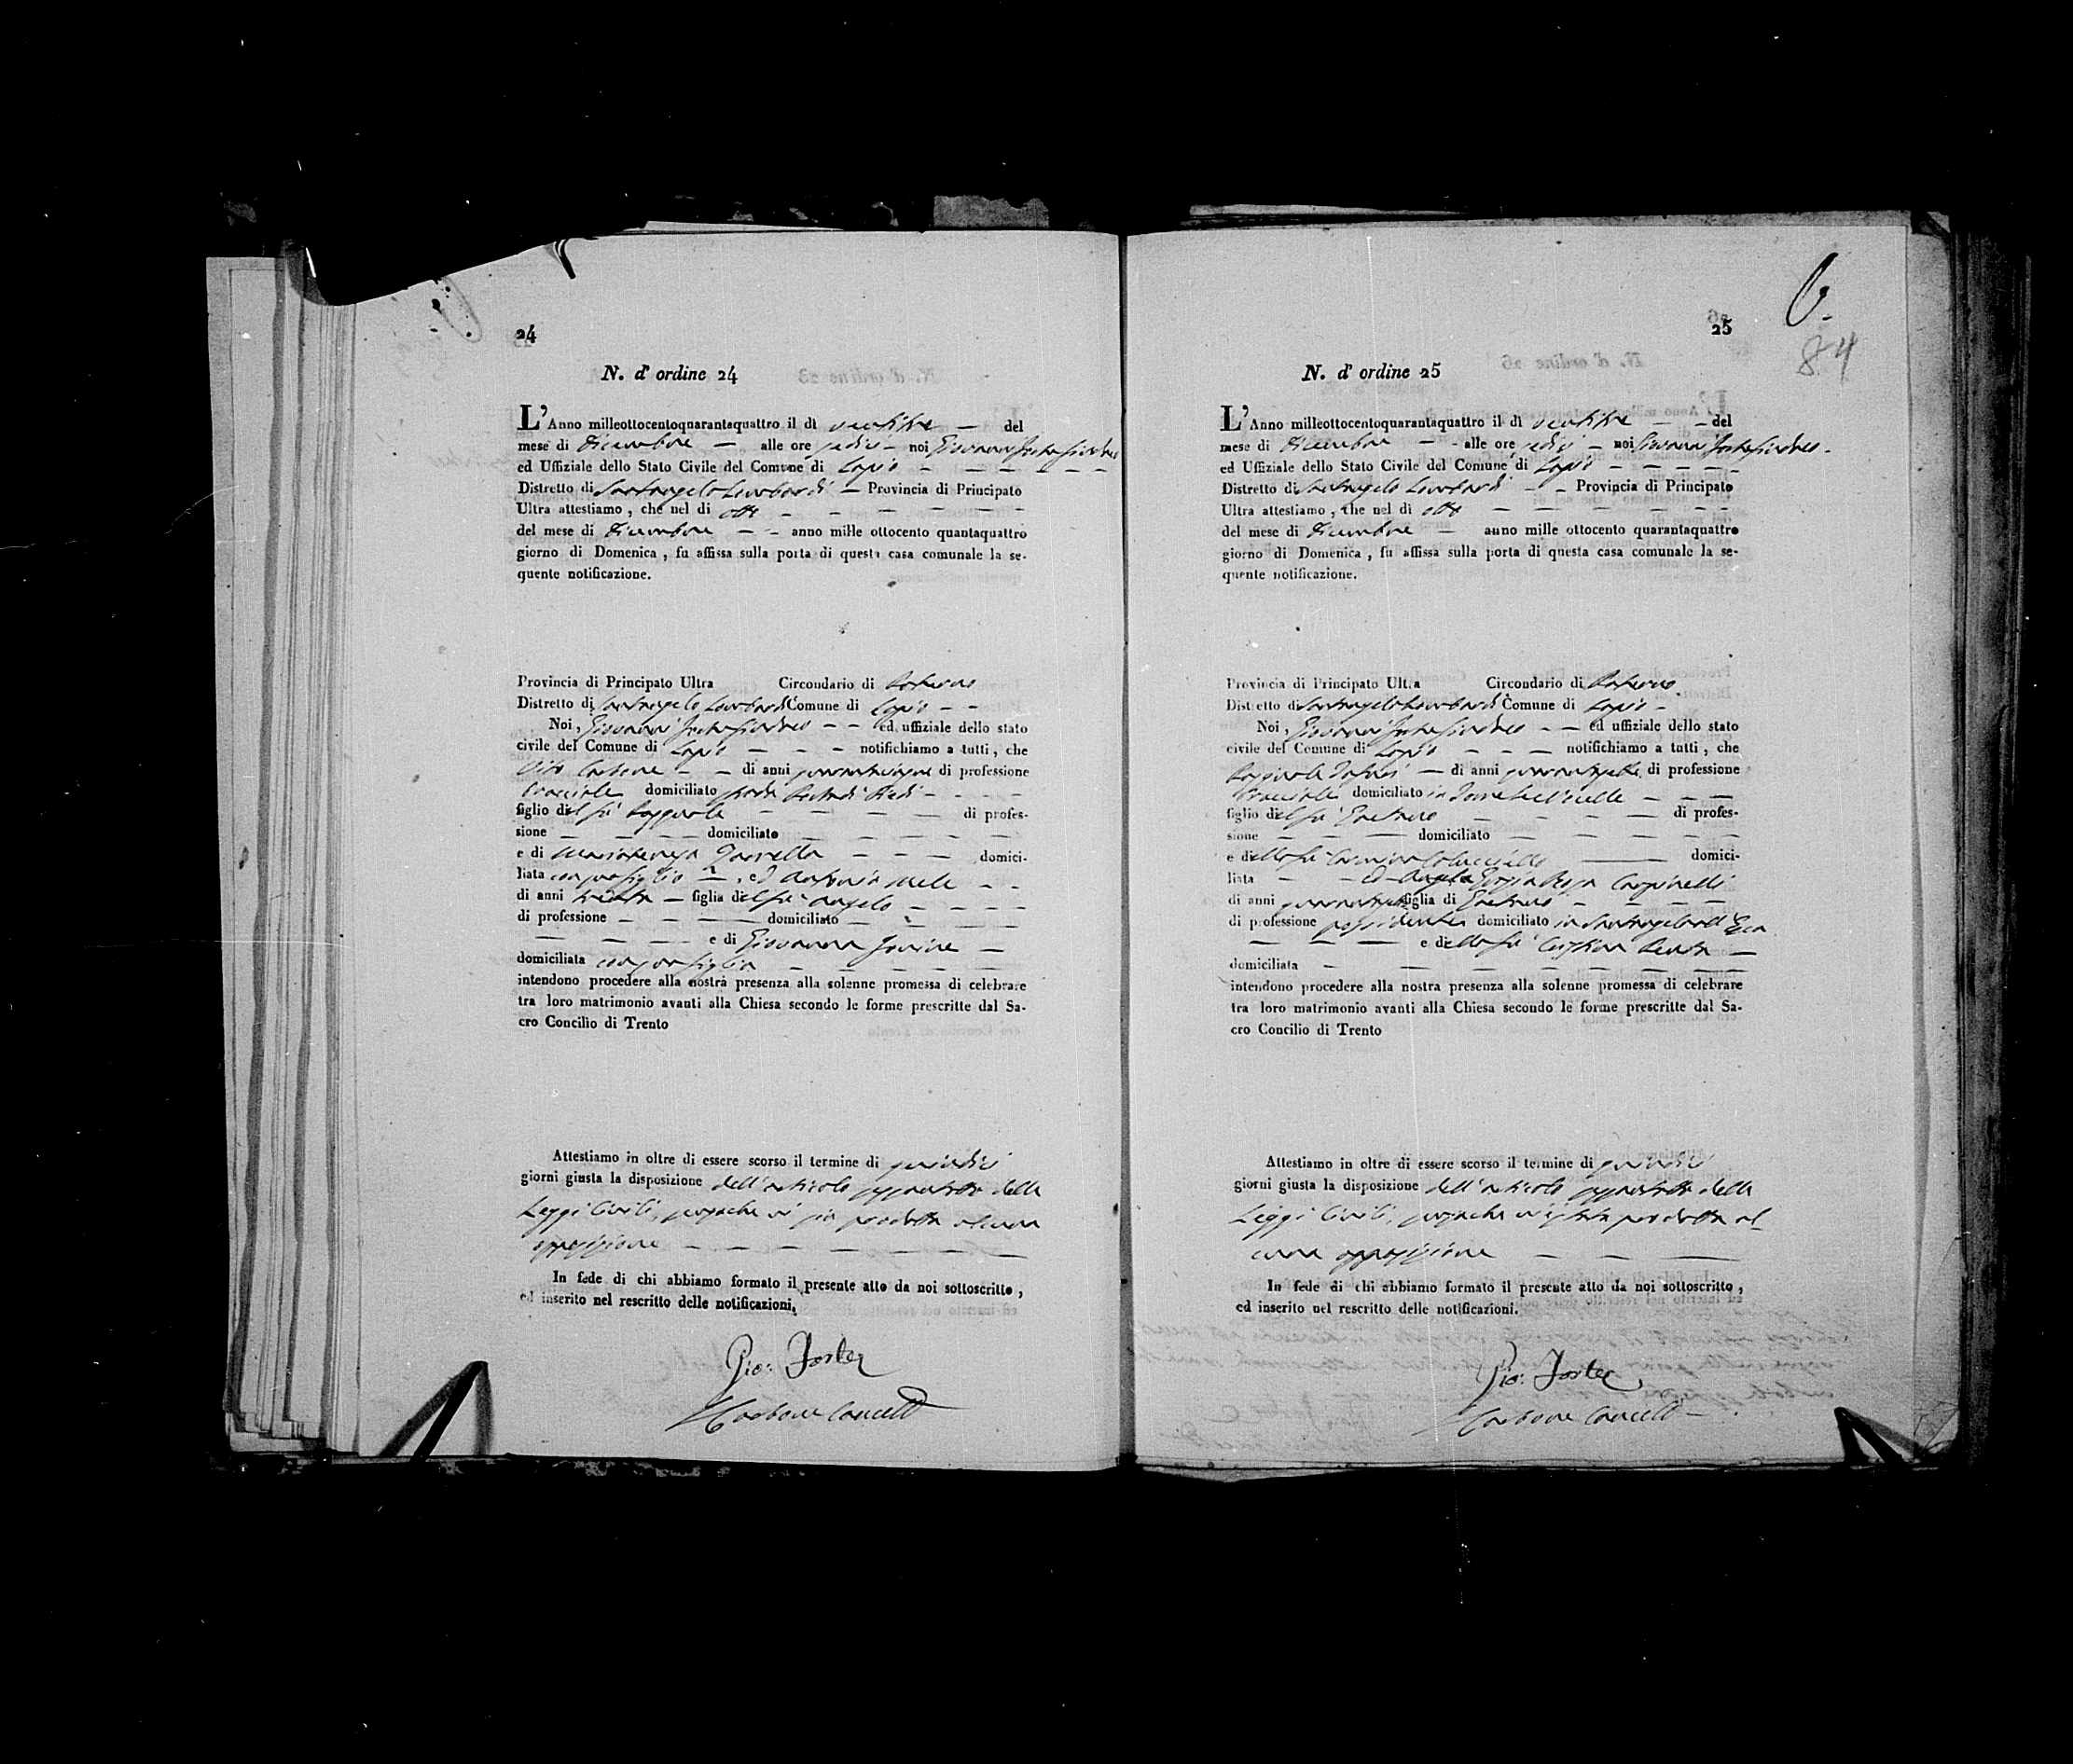 24
N. d' ordine 24
L'Anno milleottocentoquarantaquattro il dì ventitre — del
mese di Dicembre — alle ore sedici — noi Giovanni
ed Uffiziale dello Stato Civile del Comune di Lapio — — — — —
Distretto di Santangelo Lombardi — Provincia di Principato
Ultra attestiamo , che nel dì otto — — — — — —
del mese di Dicembre — — anno mille ottocento quantaquattro
giorno di Domenica , fu affissa sulla porta di questa casa comunale la se-
guente notificazione.
Provincia di Principato Ultra Circondario di Paterno
Distretto di Santangelo Lombardi Comune di Lapio — —
Noi , Giovanni — — ed uffiziale dello stato
civile del Comune di Lapio — — — notifichiamo a tutti , che
Vito Carbone — — di anni quarantacinque di professione
Bracciale domiciliato — — — —
figlio del fu Pasquale — — — — di profes-
sione — — — — domiciliato — — — — — —
e di Mariateresa — — — domici-
liata con suo figlio — , ed Antonia Mele — —
di anni trenta — figlia del fu Angelo — — — —
di professione — — — domiciliato — — — —
— — — — e di Giovanna Iovine —
domiciliata con sua figlia — — — — — —
intendono procedere alla nostra presenza alla solenne promessa di celebrare
tra loro matrimonio avanti alla Chiesa secondo le forme prescritte dal Sa-
cro Concilio di Trento
Attestiamo in oltre di essere scorso il termine di quindici
giorni giusta la disposizione dell'articolo della
Leggi Civili, senza che vi sia prodotta alcuna
opposizione — — — — — — —
In fede di chi abbiamo formato il presente atto da noi sottoscritto ,
ed inserito nel rescritto delle notificazioni.
Gio: Forte
Carbone Cancell
25
84
N. d' ordine 25
L'Anno milleottocentoquarantaquattro il dì ventitre — — del
mese di Dicembre — — alle ore sedici — noi Giovanni
ed Uffiziale dello Stato Civile del Comune di Lapio — — — — —
Distretto di Santangelo Lombardi — — Provincia di Principato
Ultra attestiamo , che nel dì otto — — — — — —
del mese di Dicembre — anno mille ottocento quarantaquattro
giorno di Domenica , fu affissa sulla porta di questa casa comunale la se-
guente notificazione.
Provincia di Principato Ultra Circondario di Paterno
Distretto di Santangelo Lombardi Comune di Lapio —
Noi , Giovanni — — ed uffiziale dello stato
civile del Comune di Lapio — — — notifichiamo a tutti , che
Pasquale — di anni di professione
Bracciale domiciliato in Torre le Nocelle — — —
figlio del fu Gaetano — — — — di profes-
sione — — — domiciliato — — — — —
e della fu Carmina — domici-
liata — — ed Rosa Carpinelli
di anni figlia di Gaetano — — — —
di professione possidente domiciliato in Santangelo all'Esca
— — — e della fu — —
domiciliata — — — — — — — —
intendono procedere alla nostra presenza alla solenne promessa di celebrare
tra loro matrimonio avanti alla Chiesa secondo le forme prescritte dal Sa-
cro Concilio di Trento
Attestiamo in oltre di essere scorso il termine di quindici
giorni giusta la disposizione dell'articolo della
Leggi Civili, senza che vi è stata prodotta al-
cuna opposizione — — —
In fede di chi abbiamo formato il presente atto da noi sottoscritto ,
ed inserito nel rescritto delle notificazioni.
Gio: Forte
Carbone Cancell